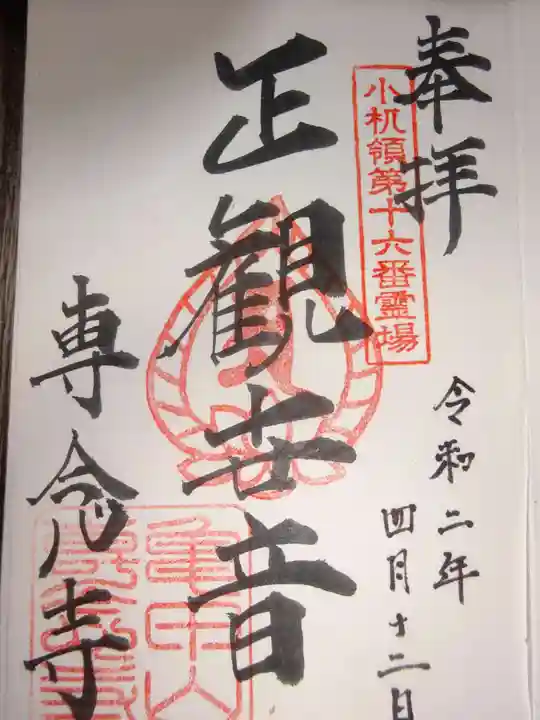 奉拝
小机領第十六番霊場
令和二年
四月十二日
正観世音
専念寺